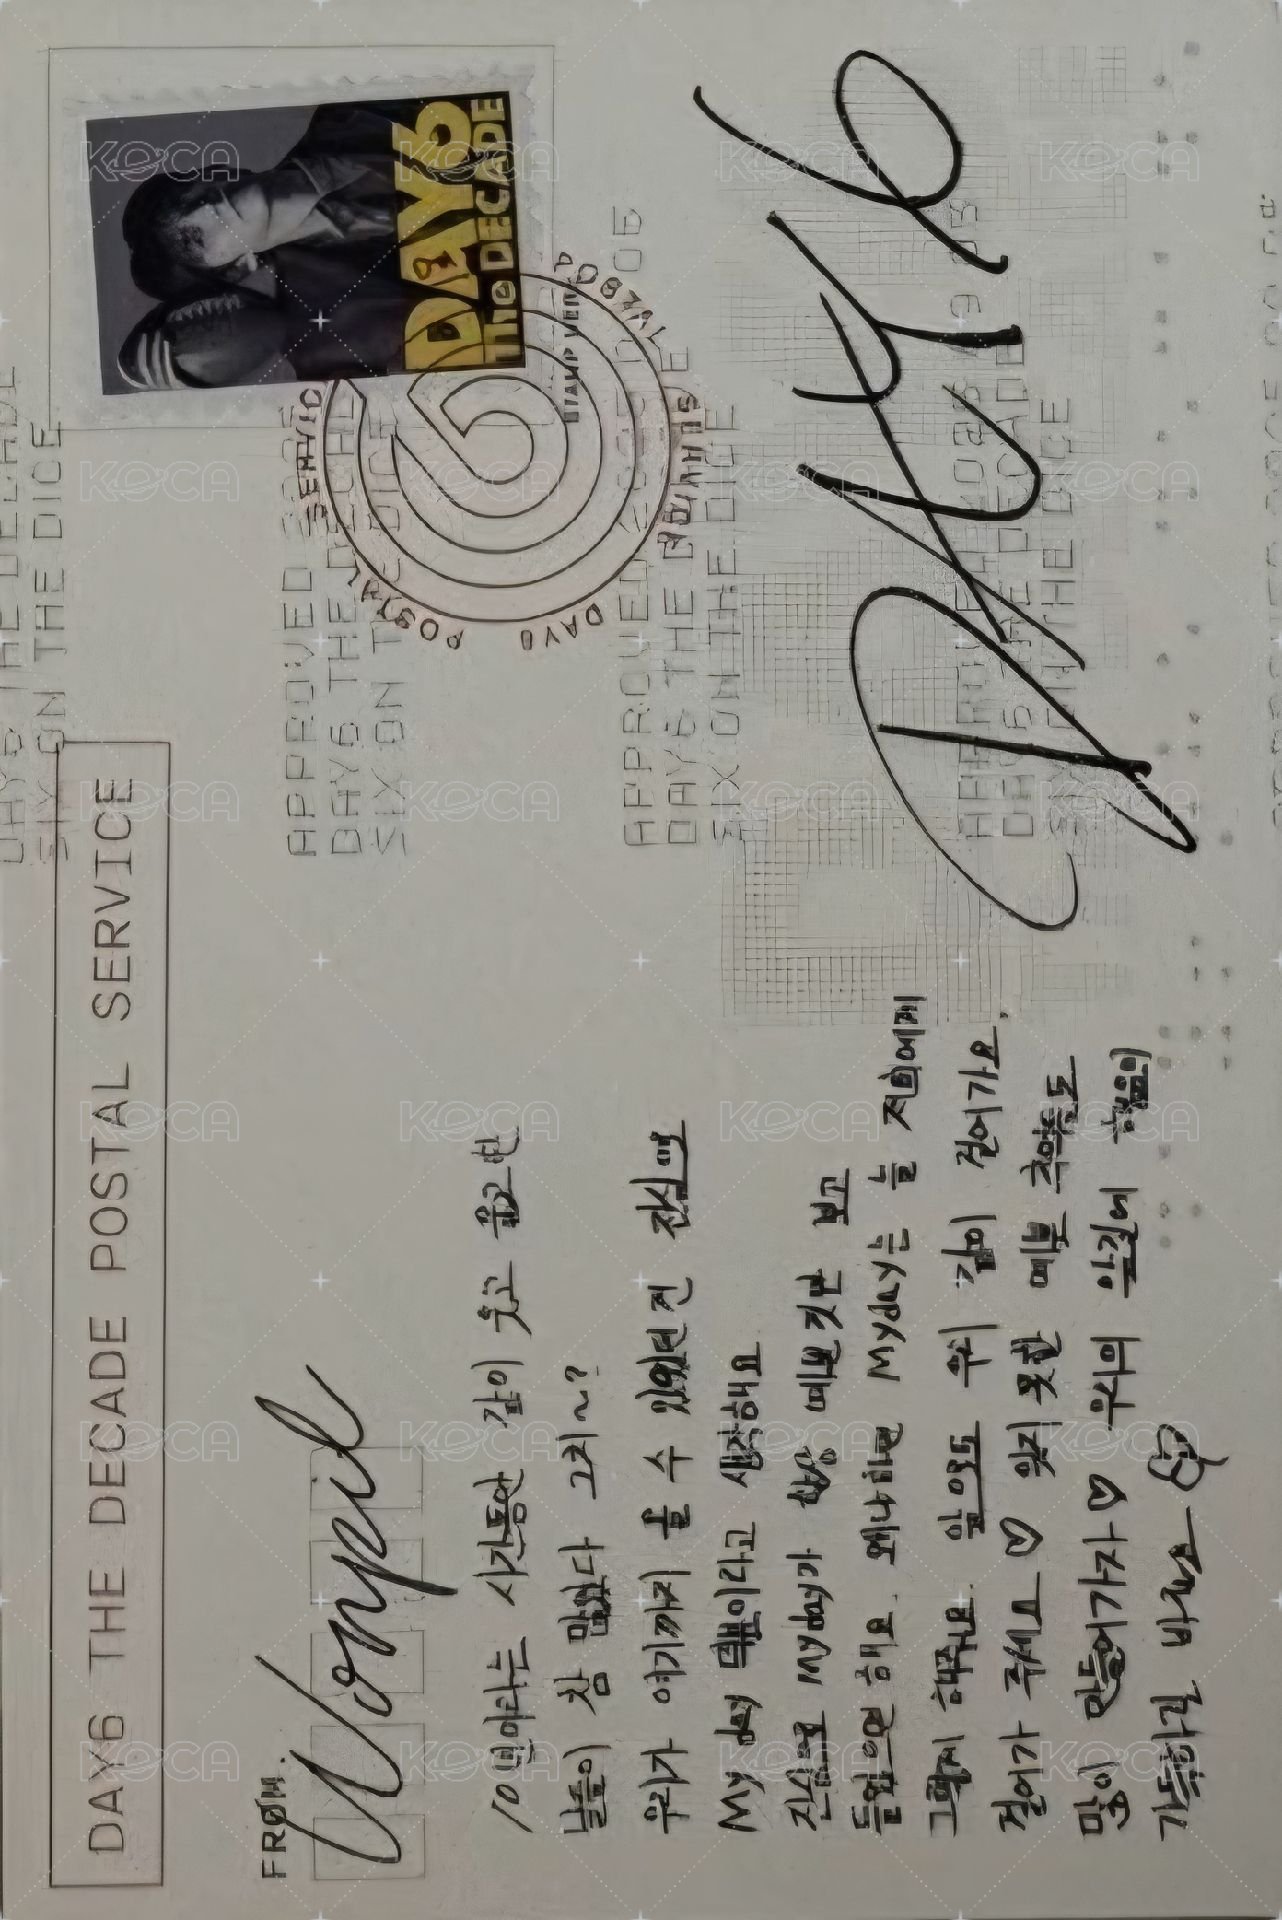 DAY6 THE DECADE POSTAL SERVICE
FROM.
Wonpil
10년이라는 시간동안 같이 웃고 울고한
날들이 참 많았다 그치~?
우리가 여기까지 올 수 있었던 건 전적으로
My day 덕분이라고 생각해요
진심으로 Myday가 항상 예쁜것만 보고
들었으면 해요. 왜나하면 Myday는 늘 저희에게
그렇게 해줘요. 앞으로도 우리 같이 걸어가요.
걸어가 주세요 ♡ 잊지 못할 예쁜 추억들도
많이 만들어가자 ♡ 우리의 앞길에 행운이
가득하길 바라요
DAY6
DAY6
The DECADE
POSTAL SERVICE
APPROVED
DAY6 THE DECADE
SIX ON THE DICE
APPROVED
DAY6 THE DECADE
SIX ON THE DICE
DAY6 THE DECADE
SIX ON THE DICE
SIX ON THE DICE
KOCA